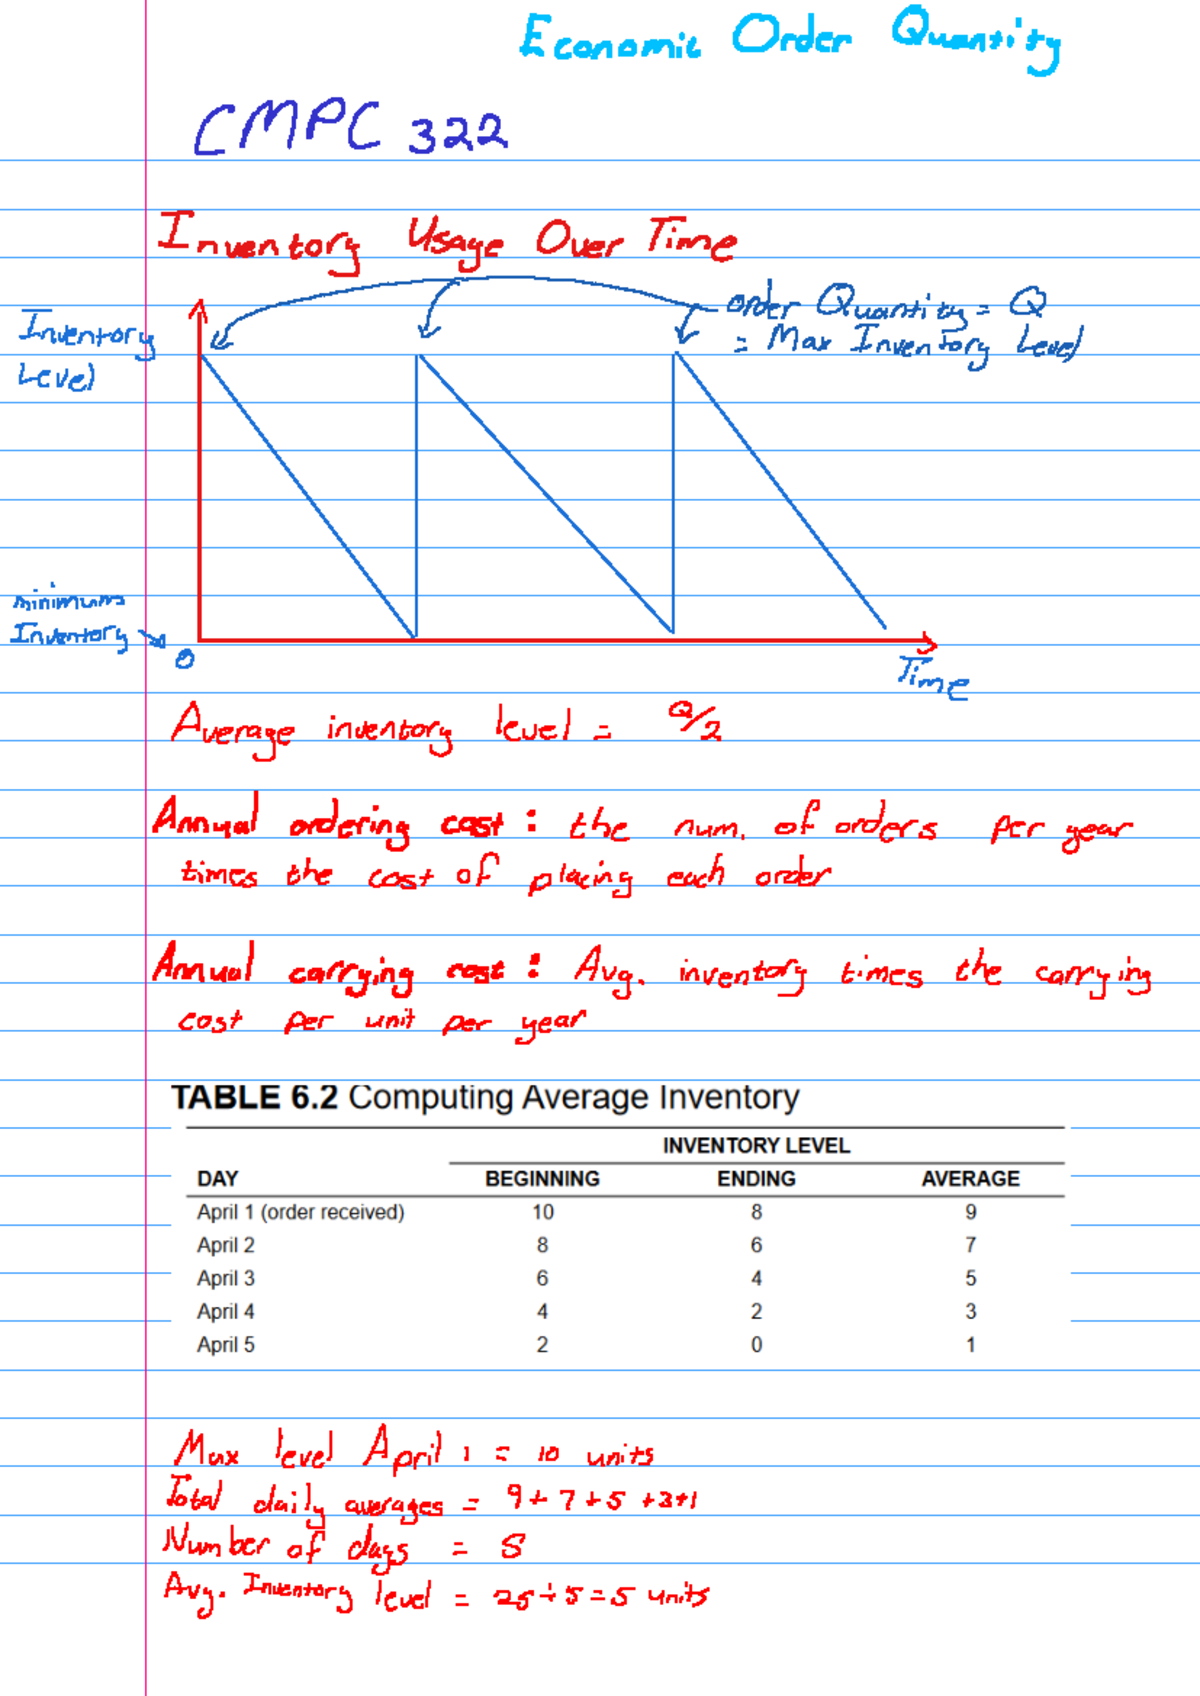 Economic Order Quantity
CMPC 322
Inventory Usage Over Time
order Quantity = Q
= Max Inventory Level
Inventory
Level
minimum
Inventory
0
Time
Average inventory level = Q/2
Annual ordering cost : the num. of orders per year
times the cost of placing each order
Annual carrying cost : Avg. inventory times the carrying
cost per unit per year
TABLE 6.2 Computing Average Inventory
INVENTORY LEVEL
DAY BEGINNING ENDING AVERAGE
April 1 (order received) 10 8 9
April 2 8 6 7
April 3 6 4 5
April 4 4 2 3
April 5 2 0 1
Max level April 1 = 10 units
Total daily averages = 9 + 7 + 5 + 3 + 1
Number of days = 5
Avg. Inventory level = 25 ÷ 5 = 5 units